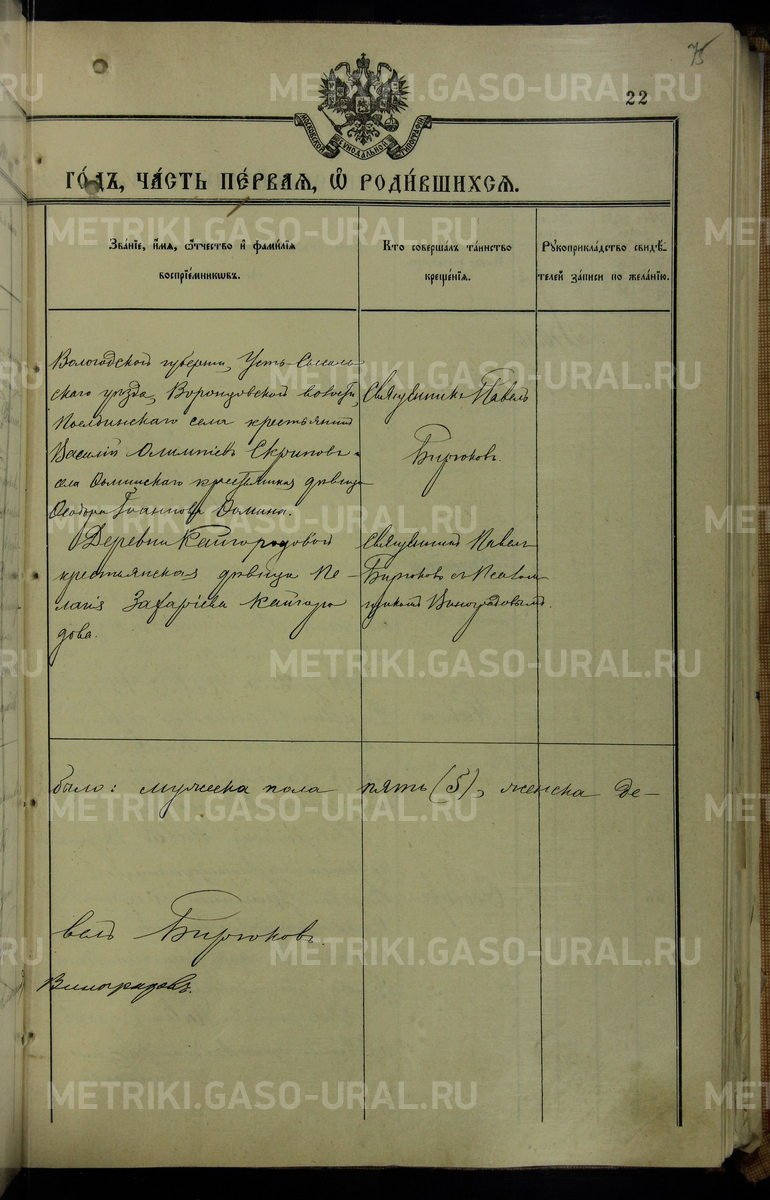 75
22
МОСКОВСКОЙ СѴНОДАЛЬНОЙ ТИПОГРАФІИ
ГО́ДЪ, ЧА́СТЬ ПЕ́РВАЯ, Ѡ҆ РОДИ́ВШИХСЯ.
Зва́нїе, и҆́мя, ѻ҆́тчество и҆ фами́лїя воспрїе́мниковъ.
Кто̀ соверша́лъ та́инство креще́нїя.
Рꙋкоприкла́дство свидѣ́телей за́писи по жела́нїю.
Вологодской губерніи, Усть-Сысоль-
скаго уѣзда, Воронцовской волости,
села крестьянинъ
Василій Олимпіевъ Скриповъ и
села крестьянская дѣвица
Ѳеодора Іоаннова Ѳомина.
Священникъ Павелъ
Бирюковъ.
Деревни Кайгородовой
крестьянская дѣвица Пе-
лагія Захаріева Кайгоро
дова.
Священникъ Павелъ
Бирюковъ съ Псалом-
щикомъ Виноградовымъ.
было: мужеска пола пять (5), женска де-
велъ Бирюковъ.
Виноградовъ.
METRIKI.GASO-URAL.RU